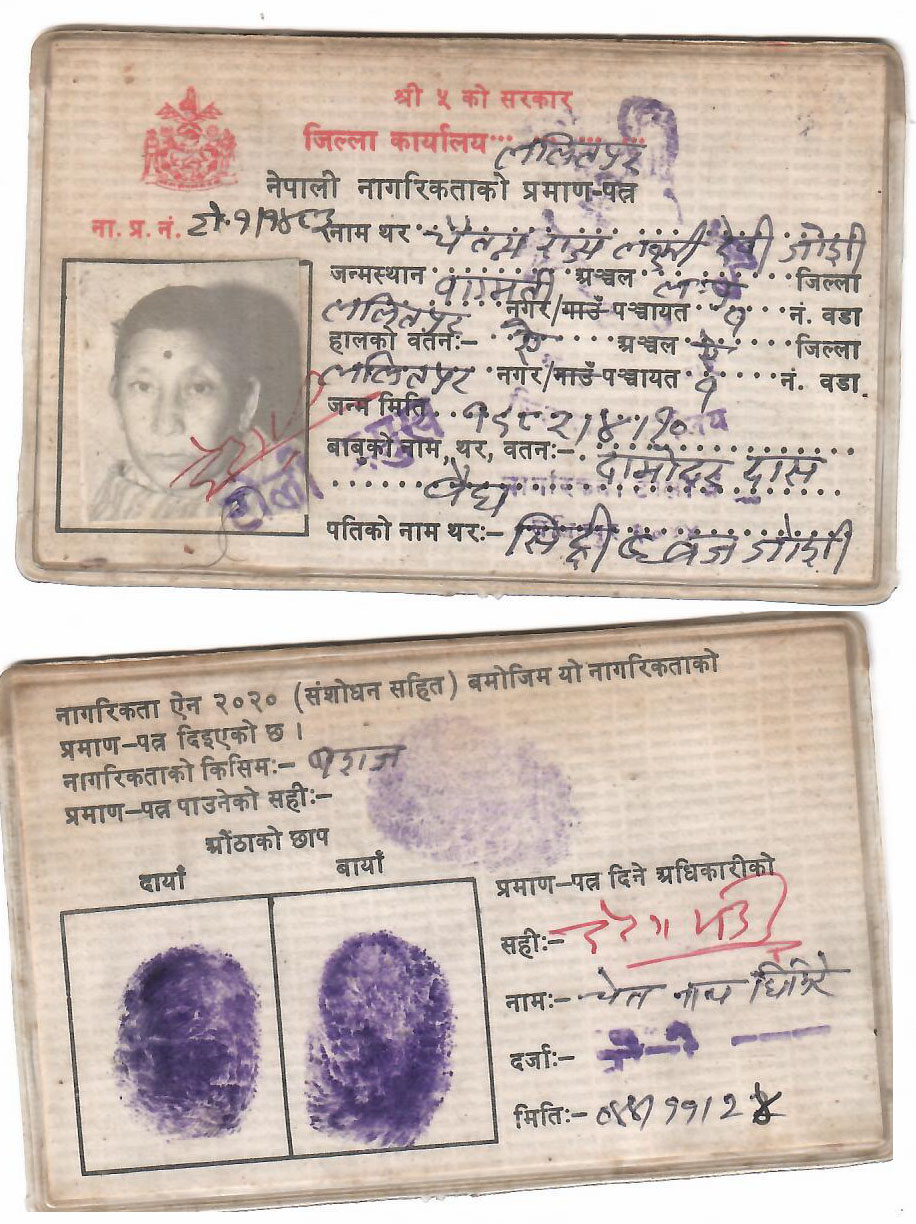 श्री ५ को सरकार
जिल्ला कार्यालय ललितपुर
नेपाली नागरिकताको प्रमाण-पत्र
ना. प्र. नं.
नाम थर लक्ष्मी देवी जोशी
जन्मस्थान वाग्मती अञ्चल ल.पु. जिल्ला
ललितपुर नगर/गाउँ पञ्चायत ९ नं. वडा
हालको वतनः- ऐ अञ्चल ऐ जिल्ला
ललितपुर नगर/गाउँ पञ्चायत ९ नं. वडा
जन्म मिति १९८२।४।१०
बाबुको नाम, थर, वतनः- दामोदर दास
वैद्य
पतिको नाम थरः- सिद्धी ध्वज जोशी
नागरिकता ऐन २०२० (संशोधन सहित) बमोजिम यो नागरिकताको
प्रमाण-पत्र दिइएको छ ।
नागरिकताको किसिमः- वंशज
प्रमाण-पत्र पाउनेको सहीः-
औंठाको छाप
दायाँ बायाँ
प्रमाण-पत्र दिने अधिकारीको
सहीः-
नामः- घिमिरे
दर्जाः-
मितिः-